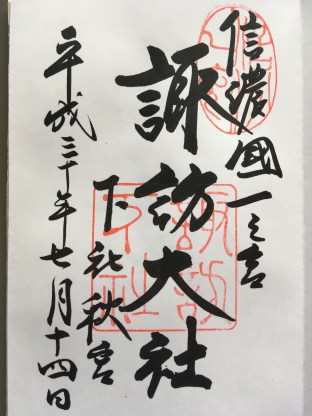 信濃國一之宮
諏訪大社
下社秋宮
平成三十年七月十四日